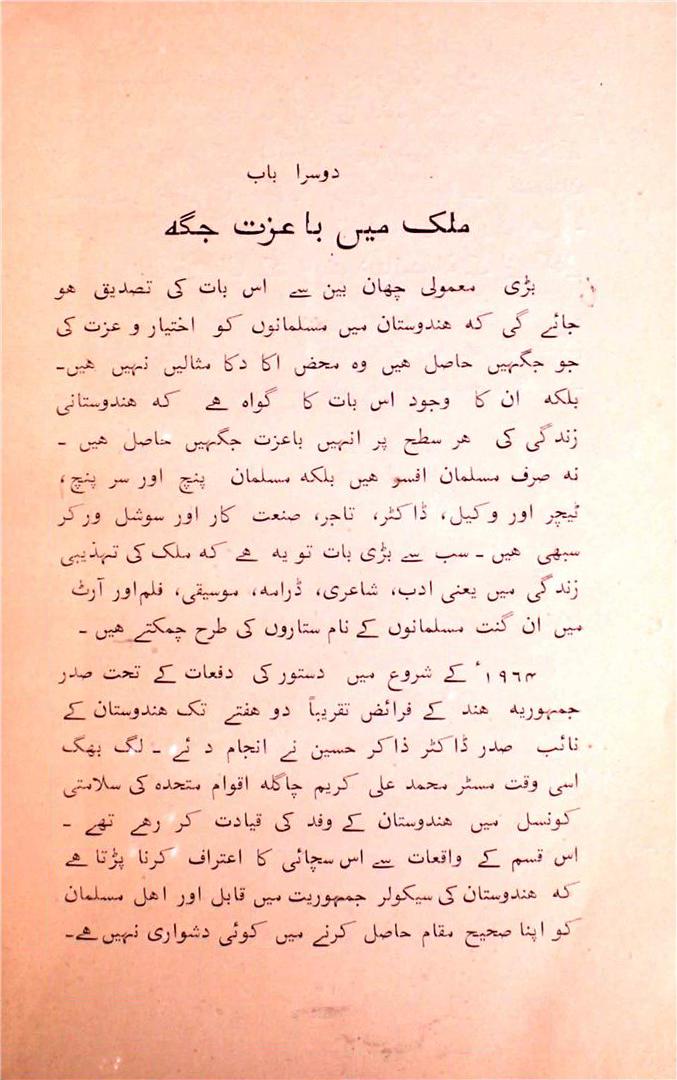 دوسرا باب
ملک میں با عزت جگہ
بڑی معمولی چھان بین سے اس بات کی تصدیق هو
جائے گی که هندوستان میں مسلمانوں کو اختیار و عزت کی
جو جگہیں حاصل هیں وه محض اکا دکا مثالیں نہیں هیں۔
بلکه ان کا وجود اس بات کا گواه ہے که هندوستانی
زندگی کی هر سطح پر انہیں باعزت جگہیں حاصل هیں ۔
نه صرف مسلمان افسر هیں بلکه مسلمان پنچ اور سر پنچ،
ٹیچر اور وکیل، ڈاکٹر، تاجر، صنعت کار اور سوشل ورکر
سبھی هیں ۔ سب سے بڑی بات تو یه ہے که ملک کی تہذیبی
زندگی میں یعنی ادب، شاعری، ڈرامه، موسیقی، فلم اور آرٹ
میں ان گنت مسلمانوں کے نام ستاروں کی طرح چمکتے هیں ۔
۱۹۶۴ء کے شروع میں دستور کی دفعات کے تحت صدر
جمہوریه هند کے فرائض تقریباً دو هفتے تک هندوستان کے
نائب صدر ڈاکٹر ذاکر حسین نے انجام دئے ۔ لگ بھگ
اسی وقت مسٹر محمد علی کریم چاگله اقوام متحده کی سلامتی
کونسل میں هندوستان کے وفد کی قیادت کر رہے تھے ۔
اس قسم کے واقعات سے اس سچائی کا اعتراف کرنا پڑتا ہے
که هندوستان کی سیکولر جمہوریت میں قابل اور اهل مسلمان
کو اپنا صحیح مقام حاصل کرنے میں کوئی دشواری نہیں ہے۔